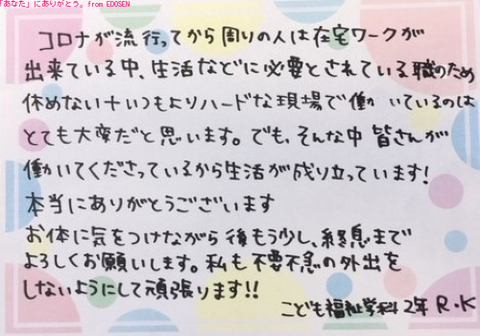 「あなた」にありがとう。from EDOSEN
コロナが流行ってから周りの人は在宅ワークが
出来ている中、生活などに必要とされている職のため
休めない+いつもよりハードな現場で働いているのは
とても大変だと思います。でも、そんな中皆さんが
働いてくださっているから生活が成り立っています!
本当にありがとうございます
お体に気をつけながら後もう少し、終息まで
よろしくお願いします。私も不要不急の外出を
しないようにして頑張ります!!
こども福祉学科2年 R.K